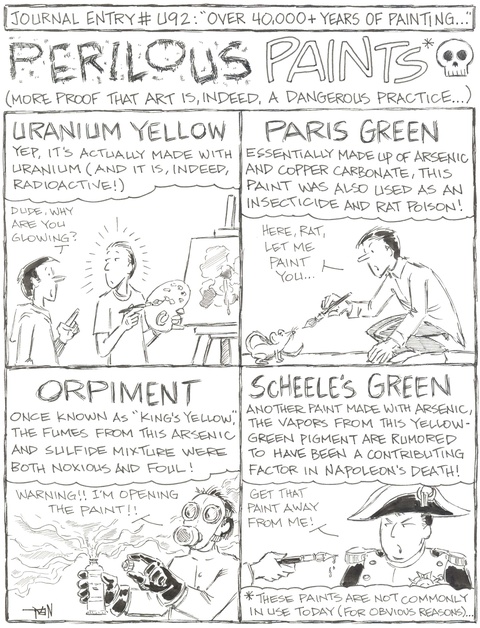 JOURNAL ENTRY # U92: "OVER 40,000+ YEARS OF PAINTING..."
PERILOUS PAINTS*
(MORE PROOF THAT ART IS, INDEED, A DANGEROUS PRACTICE...)
URANIUM YELLOW
YEP, IT'S ACTUALLY MADE WITH
URANIUM (AND IT IS, INDEED,
RADIOACTIVE!)
DUDE, WHY
ARE YOU
GLOWING?
PARIS GREEN
ESSENTIALLY MADE UP OF ARSENIC
AND COPPER CARBONATE, THIS
PAINT WAS ALSO USED AS AN
INSECTICIDE AND RAT POISON!
HERE, RAT,
LET ME
PAINT
YOU...
ORPIMENT
ONCE KNOWN AS "KING'S YELLOW,"
THE FUMES FROM THIS ARSENIC
AND SULFIDE MIXTURE WERE
BOTH NOXIOUS AND FOUL!
WARNING!! I'M OPENING
THE PAINT!!
SCHEELE'S GREEN
ANOTHER PAINT MADE WITH ARSENIC,
THE VAPORS FROM THIS YELLOW-
GREEN PIGMENT ARE RUMORED
TO HAVE BEEN A CONTRIBUTING
FACTOR IN NAPOLEON'S DEATH!
GET THAT
PAINT AWAY
FROM ME!
* THESE PAINTS ARE NOT COMMONLY
IN USE TODAY (FOR OBVIOUS REASONS)...